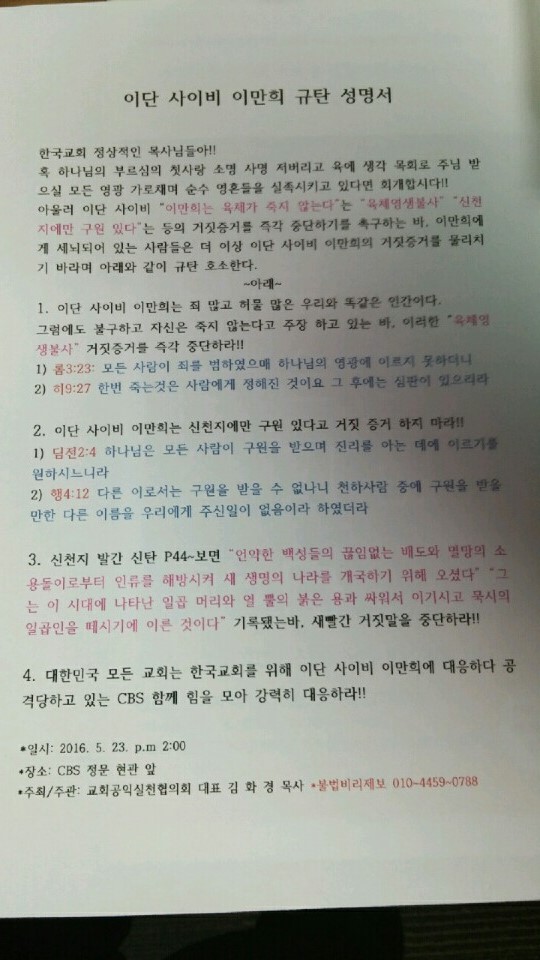 이단 사이비 이만희 규탄 성명서
한국교회 정상적인 목사님들아!!
혹 하나님의 부르심의 첫사랑 소명 사명 저버리고 육에 생각 목회로 주님 받
으실 모든 영광 가로채며 순수 영혼들을 실족시키고 있다면 회개합시다!!
아울러 이단 사이비 "이만희는 육체가 죽지 않는다"는 "육체영생불사" "신천
지에만 구원 있다"는 등의 거짓증거를 즉각 중단하기를 촉구하는 바, 이만희에
게 세뇌되어 있는 사람들은 더 이상 이단 사이비 이만희의 거짓증거를 물리치
기 바라며 아래와 같이 규탄 호소한다.
~아래~
1. 이단 사이비 이만희는 죄 많고 허물 많은 우리와 똑같은 인간이다.
그럼에도 불구하고 자신은 죽지 않는다고 주장 하고 있는 바, 이러한 "육체영
생불사" 거짓증거를 즉각 중단하라!!
1) 롬3:23: 모든 사람이 죄를 범하였으매 하나님의 영광에 이르지 못하더니
2) 히9:27 한번 죽는것은 사람에게 정해진 것이요 그 후에는 심판이 있으리라
2. 이단 사이비 이만희는 신천지에만 구원 있다고 거짓 증거 하지 마라!!
1) 딤전2:4 하나님은 모든 사람이 구원을 받으며 진리를 아는 데에 이르기를
원하시느니라
2) 행4:12 다른 이로서는 구원을 받을 수 없나니 천하사람 중에 구원을 받을
만한 다른 이름을 우리에게 주신일이 없음이라 하였더라
3. 신천지 발간 신탄 P44~보면 "인약한 백성들의 끊임없는 배도와 멸망의 소
용돌이로부터 인류를 해방시켜 새 생명의 나라를 개국하기 위해 오셨다" "그
는 이 시대에 나타난 일곱 머리와 열 뿔의 붉은 용과 싸워서 이기시고 묵시의
일곱인을 떼시기에 이른 것이다" 기록됐는바, 새빨간 거짓말을 중단하라!!
4. 대한민국 모든 교회는 한국교회를 위해 이단 사이비 이만희에 대응하다 공
격당하고 있는 CBS 함께 힘을 모아 강력히 대응하라!!
*일시: 2016. 5. 23. p.m 2:00
*장소: CBS 정문 현관 앞
*주최/주관: 교회공익실천협의회 대표 김 화 경 목사 *불법비리제보 010~4459~0788